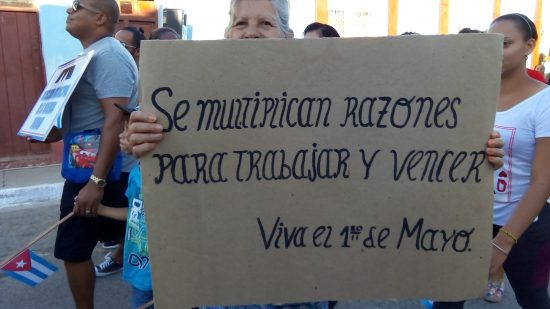 Se multiplican razones
para trabajar y vencer
Viva el 1ro de Mayo.